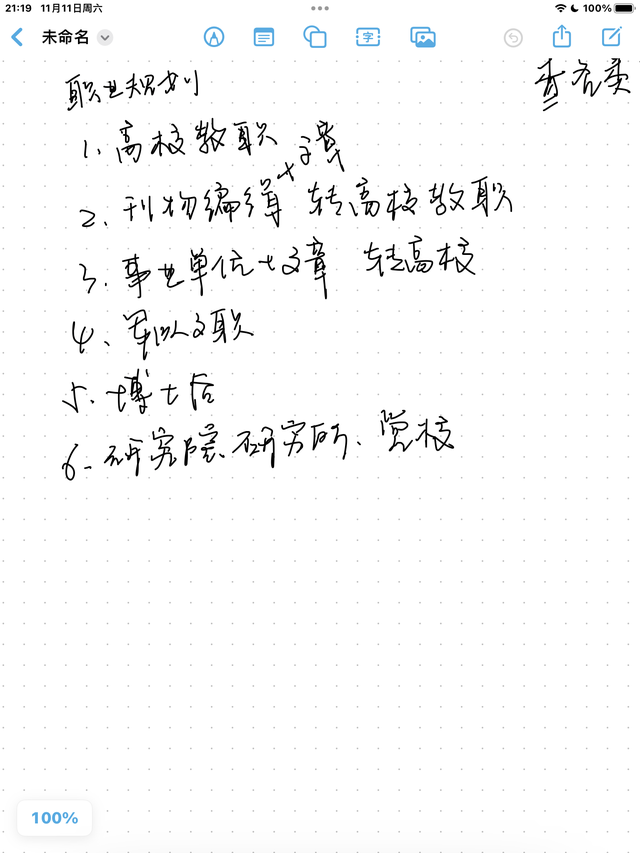 21:19 11月11日周六
100%
未命名
字
职业规划
查各类
1. 高校教职
2. 刊物编辑+文章 转高校教职
3. 事业单位+文章 转高校
4. 军队文职
5. 博士后
6. 研究院、研究所、党校
100%